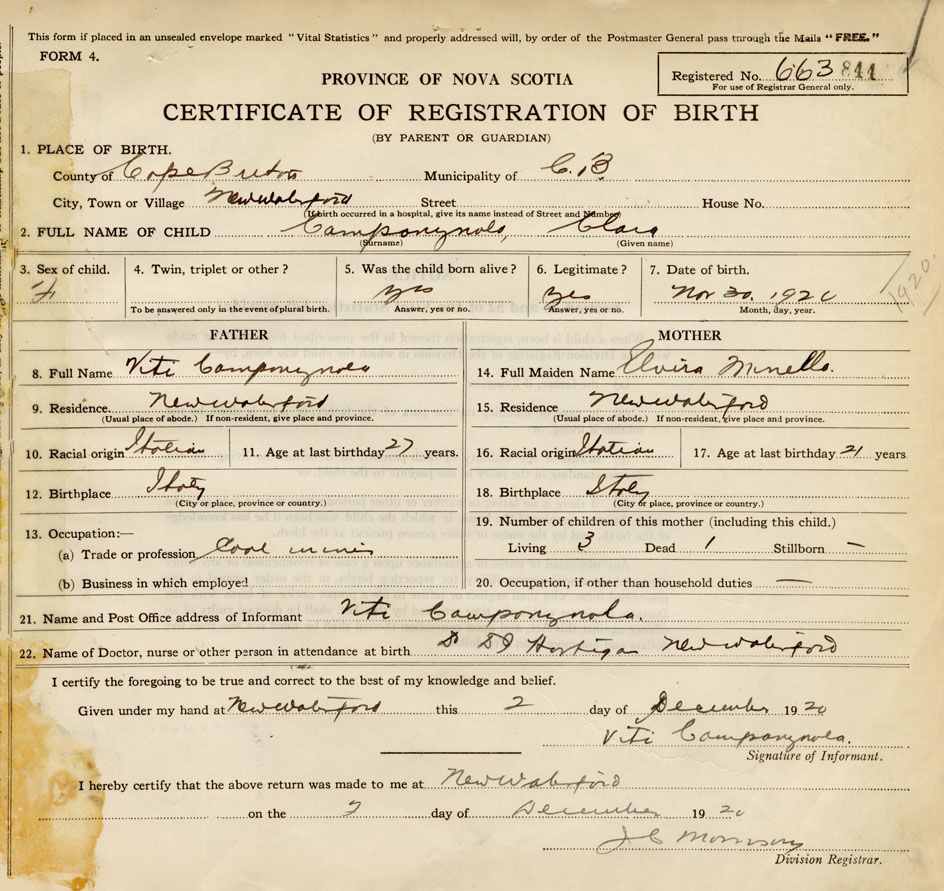 This form if placed in an unsealed envelope marked "Vital Statistics" and properly addressed will, by order of the Postmaster General pass through the Mails "FREE."
FORM 4.
Registered No. 663 844
For use of Registrar General only.
PROVINCE OF NOVA SCOTIA
CERTIFICATE OF REGISTRATION OF BIRTH
(BY PARENT OR GUARDIAN)
1. PLACE OF BIRTH.
County of Cape Breton Municipality of C.B.
City, Town or Village New Waterford Street House No.
(If birth occurred in a hospital, give its name instead of Street and Number)
2. FULL NAME OF CHILD Camponynola, Clara
(Surname) (Given name)
3. Sex of child. 4. Twin, triplet or other? 5. Was the child born alive? 6. Legitimate? 7. Date of birth.
F yes yes Nov 30, 1920 1920.
To be answered only in the event of plural birth. Answer, yes or no. Answer, yes or no. Month, day, year.
FATHER MOTHER
8. Full Name Viti Camponynola 14. Full Maiden Name Elvira Minello.
9. Residence New Waterford 15. Residence New Waterford
(Usual place of abode.) If non-resident, give place and province. (Usual place of abode.) If non-resident, give place and province.
10. Racial origin Italian 11. Age at last birthday 27 years. 16. Racial origin Italian 17. Age at last birthday 21 years
12. Birthplace Italy 18. Birthplace Italy
(City or place, province or country.) (City or place, province or country.)
13. Occupation:— 19. Number of children of this mother (including this child.)
(a) Trade or profession Coal miner Living 3 Dead 1 Stillborn —
(b) Business in which employed 20. Occupation, if other than household duties —
21. Name and Post Office address of Informant Viti Camponynola.
22. Name of Doctor, nurse or other person in attendance at birth Dr Hartigan New Waterford
I certify the foregoing to be true and correct to the best of my knowledge and belief.
Given under my hand at New Waterford this 2 day of December 1920
Viti Camponynola.
Signature of Informant.
I hereby certify that the above return was made to me at New Waterford
on the 2 day of December 1920
J C Morrison
Division Registrar.